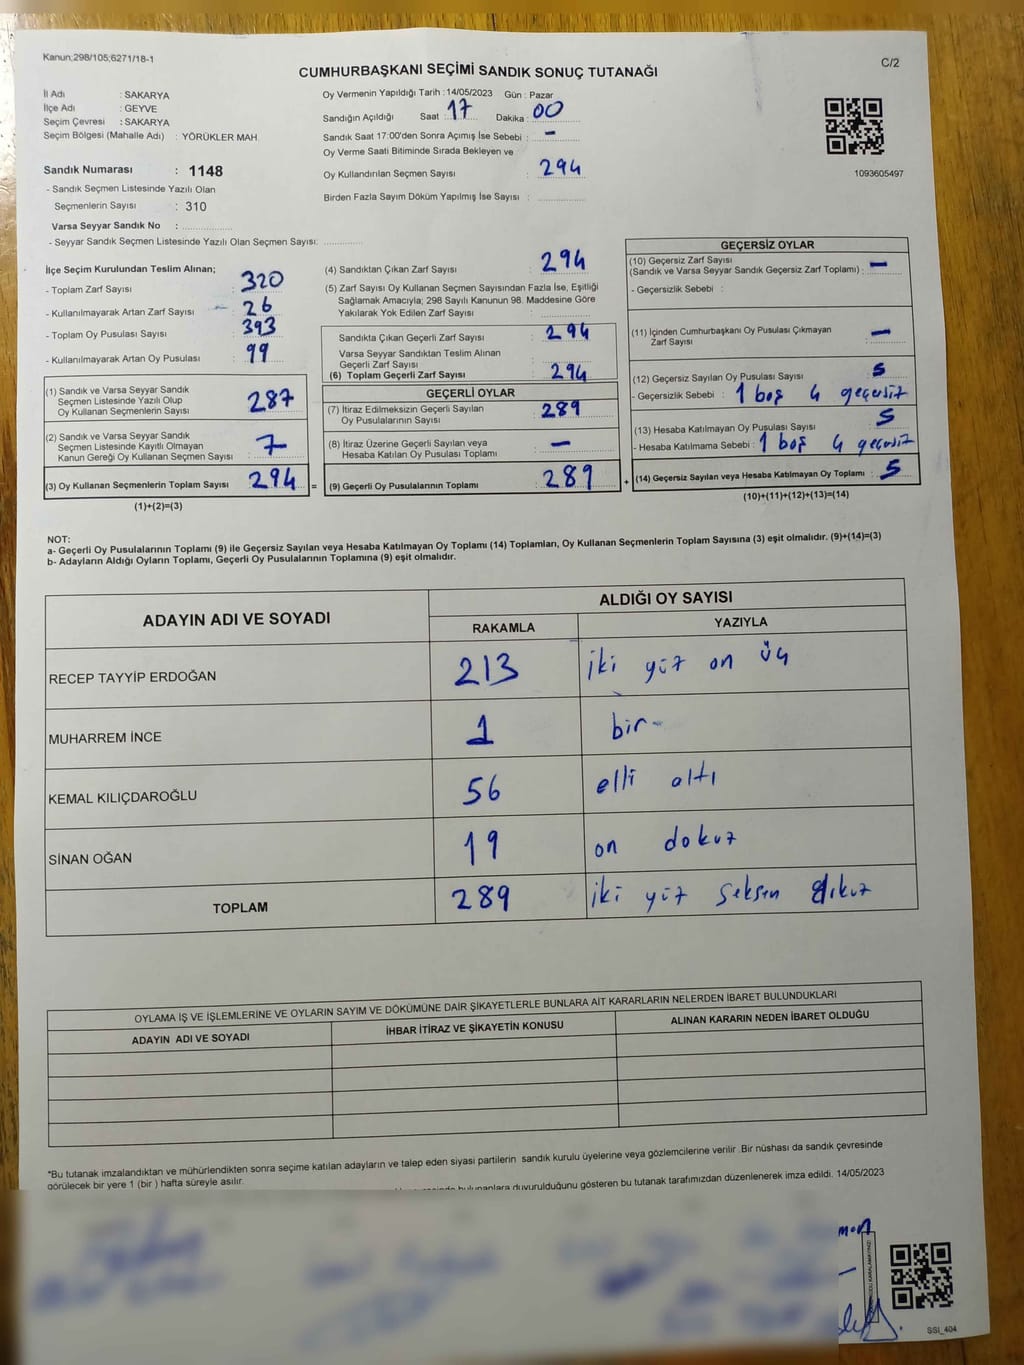 Kanun;298/105;6271/18-1
C/2
CUMHURBAŞKANI SEÇİMİ SANDIK SONUÇ TUTANAĞI
İl Adı : SAKARYA
İlçe Adı : GEYVE
Seçim Çevresi : SAKARYA
Seçim Bölgesi (Mahalle Adı) : YÖRÜKLER MAH.
Sandık Numarası : 1148
- Sandık Seçmen Listesinde Yazılı Olan
Seçmenlerin Sayısı : 310
Varsa Seyyar Sandık No :
- Seyyar Sandık Seçmen Listesinde Yazılı Olan Seçmen Sayısı:
Oy Vermenin Yapıldığı Tarih :14/05/2023 Gün : Pazar
Sandığın Açıldığı Saat : 17 Dakika : 00
Sandık Saat 17:00'den Sonra Açımış İse Sebebi : -
Oy Verme Saati Bitiminde Sırada Bekleyen ve
Oy Kullandırılan Seçmen Sayısı : 294
Birden Fazla Sayım Döküm Yapılmış İse Sayısı :
1093605497
İlçe Seçim Kurulundan Teslim Alınan;
- Toplam Zarf Sayısı : 320
- Kullanılmayarak Artan Zarf Sayısı : 26
- Toplam Oy Pusulası Sayısı : 393
- Kullanılmayarak Artan Oy Pusulası : 99
(1) Sandık ve Varsa Seyyar Sandık
Seçmen Listesinde Yazılı Olup
Oy Kullanan Seçmenlerin Sayısı : 287
(2) Sandık ve Varsa Seyyar Sandık
Seçmen Listesinde Kayıtlı Olmayan
Kanun Gereği Oy Kullanan Seçmen Sayısı : 7
(3) Oy Kullanan Seçmenlerin Toplam Sayısı : 294 =
(1)+(2)=(3)
(4) Sandıktan Çıkan Zarf Sayısı : 294
(5) Zarf Sayısı Oy Kullanan Seçmen Sayısından Fazla İse, Eşitliği
Sağlamak Amacıyla; 298 Sayılı Kanunun 98. Maddesine Göre
Yakılarak Yok Edilen Zarf Sayısı :
Sandıkta Çıkan Geçerli Zarf Sayısı : 294
Varsa Seyyar Sandıktan Teslim Alınan
Geçerli Zarf Sayısı :
(6) Toplam Geçerli Zarf Sayısı : 294
GEÇERLİ OYLAR
(7) İtiraz Edilmeksizin Geçerli Sayılan
Oy Pusulalarının Sayısı : 289
(8) İtiraz Üzerine Geçerli Sayılan veya
Hesaba Katılan Oy Pusulası Toplamı : -
(9) Geçerli Oy Pusulalarının Toplamı : 289 +
GEÇERSİZ OYLAR
(10) Geçersiz Zarf Sayısı
(Sandık ve Varsa Seyyar Sandık Geçersiz Zarf Toplamı) : -
- Geçersizlik Sebebi :
(11) İçinden Cumhurbaşkanı Oy Pusulası Çıkmayan
Zarf Sayısı : -
(12) Geçersiz Sayılan Oy Pusulası Sayısı : 5
- Geçersizlik Sebebi : 1 boş 4 geçersiz
(13) Hesaba Katılmayan Oy Pusulası Sayısı : 5
- Hesaba Katılmama Sebebi : 1 boş 4 geçersiz
(14) Geçersiz Sayılan veya Hesaba Katılmayan Oy Toplamı : 5
(10)+(11)+(12)+(13)=(14)
NOT:
a- Geçerli Oy Pusulalarının Toplamı (9) ile Geçersiz Sayılan veya Hesaba Katılmayan Oy Toplamı (14) Toplamları, Oy Kullanan Seçmenlerin Toplam Sayısına (3) eşit olmalıdır. (9)+(14)=(3)
b- Adayların Aldığı Oyların Toplamı, Geçerli Oy Pusulalarının Toplamına (9) eşit olmalıdır.
ADAYIN ADI VE SOYADI ALDIĞI OY SAYISI
RAKAMLA YAZIYLA
RECEP TAYYİP ERDOĞAN 213 iki yüz on üç
MUHARREM İNCE 1 bir-
KEMAL KILIÇDAROĞLU 56 elli altı
SİNAN OĞAN 19 on dokuz
TOPLAM 289 iki yüz seksen dokuz
OYLAMA İŞ VE İŞLEMLERİNE VE OYLARIN SAYIM VE DÖKÜMÜNE DAİR ŞİKAYETLERLE BUNLARA AİT KARARLARIN NELERDEN İBARET BULUNDUKLARI
ADAYIN ADI VE SOYADI İHBAR İTİRAZ VE ŞİKAYETİN KONUSU ALINAN KARARIN NEDEN İBARET OLDUĞU
*Bu tutanak imzalandıktan ve mühürlendikten sonra seçime katılan adayların ve talep eden siyasi partilerin sandık kurulu üyelerine veya gözlemcilerine verilir. Bir nüshası da sandık çevresinde
görülecek bir yere 1 (bir ) hafta süreyle asılır.
bulunanlara duyurulduğunu gösteren bu tutanak tarafımızdan düzenlenerek imza edildi. 14/05/2023
SSİ_404